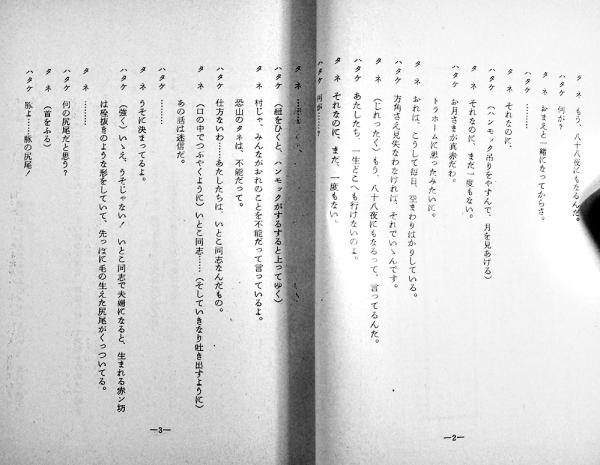 タネ　もう、八十八夜にもなるんだ。
ハタケ　何が？
タネ　おまえと一緒になってからさ。
ハタケ　………
タネ　それなのに、
ハタケ　（ハンモック吊りをやすんで、月を見あげる）
タネ　それなのに、まだ一度もない。
ハタケ　お月さまが真赤だわ。
トラホームに患ったみたいに。
タネ　おれは、こうして毎日、空まわりばかりしている。
ハタケ　方角さえ見失なわなければ、それでいゝんです。
タネ　（じれったく）もう、八十八夜にもなるって、言ってるんだ。
ハタケ　あたしたち、一生どこへも行けないのよ。
タネ　それなのに、まだ、一度もない。
ハタケ　何が……？
—2—
タネ　………
ハタケ　（紐をひくと、ハンモックがするすると上ってゆく）
タネ　村じゃ、みんながおれのことを不能だって言っているよ。
恐山のタネは、不能だって。
ハタケ　仕方ないわ……あたしたちは、いとこ同志なんだもの。
タネ　（口の中でつぶやくように）いとこ同志……（そしていきなり吐き出すように）
あの話は迷信だ。
ハタケ　………
タネ　うそに決まってるよ。
ハタケ　（強く）いゝえ、うそじゃない！　いとこ同志で夫婦になると、生まれる赤ン坊
は栓抜きのような形をしていて、先っぽに毛の生えた尻尾がくっついてる。
タネ　………
ハタケ　何の尻尾だと思う？
タネ　（首をふる）
ハタケ　豚よ……豚の尻尾！
—3—